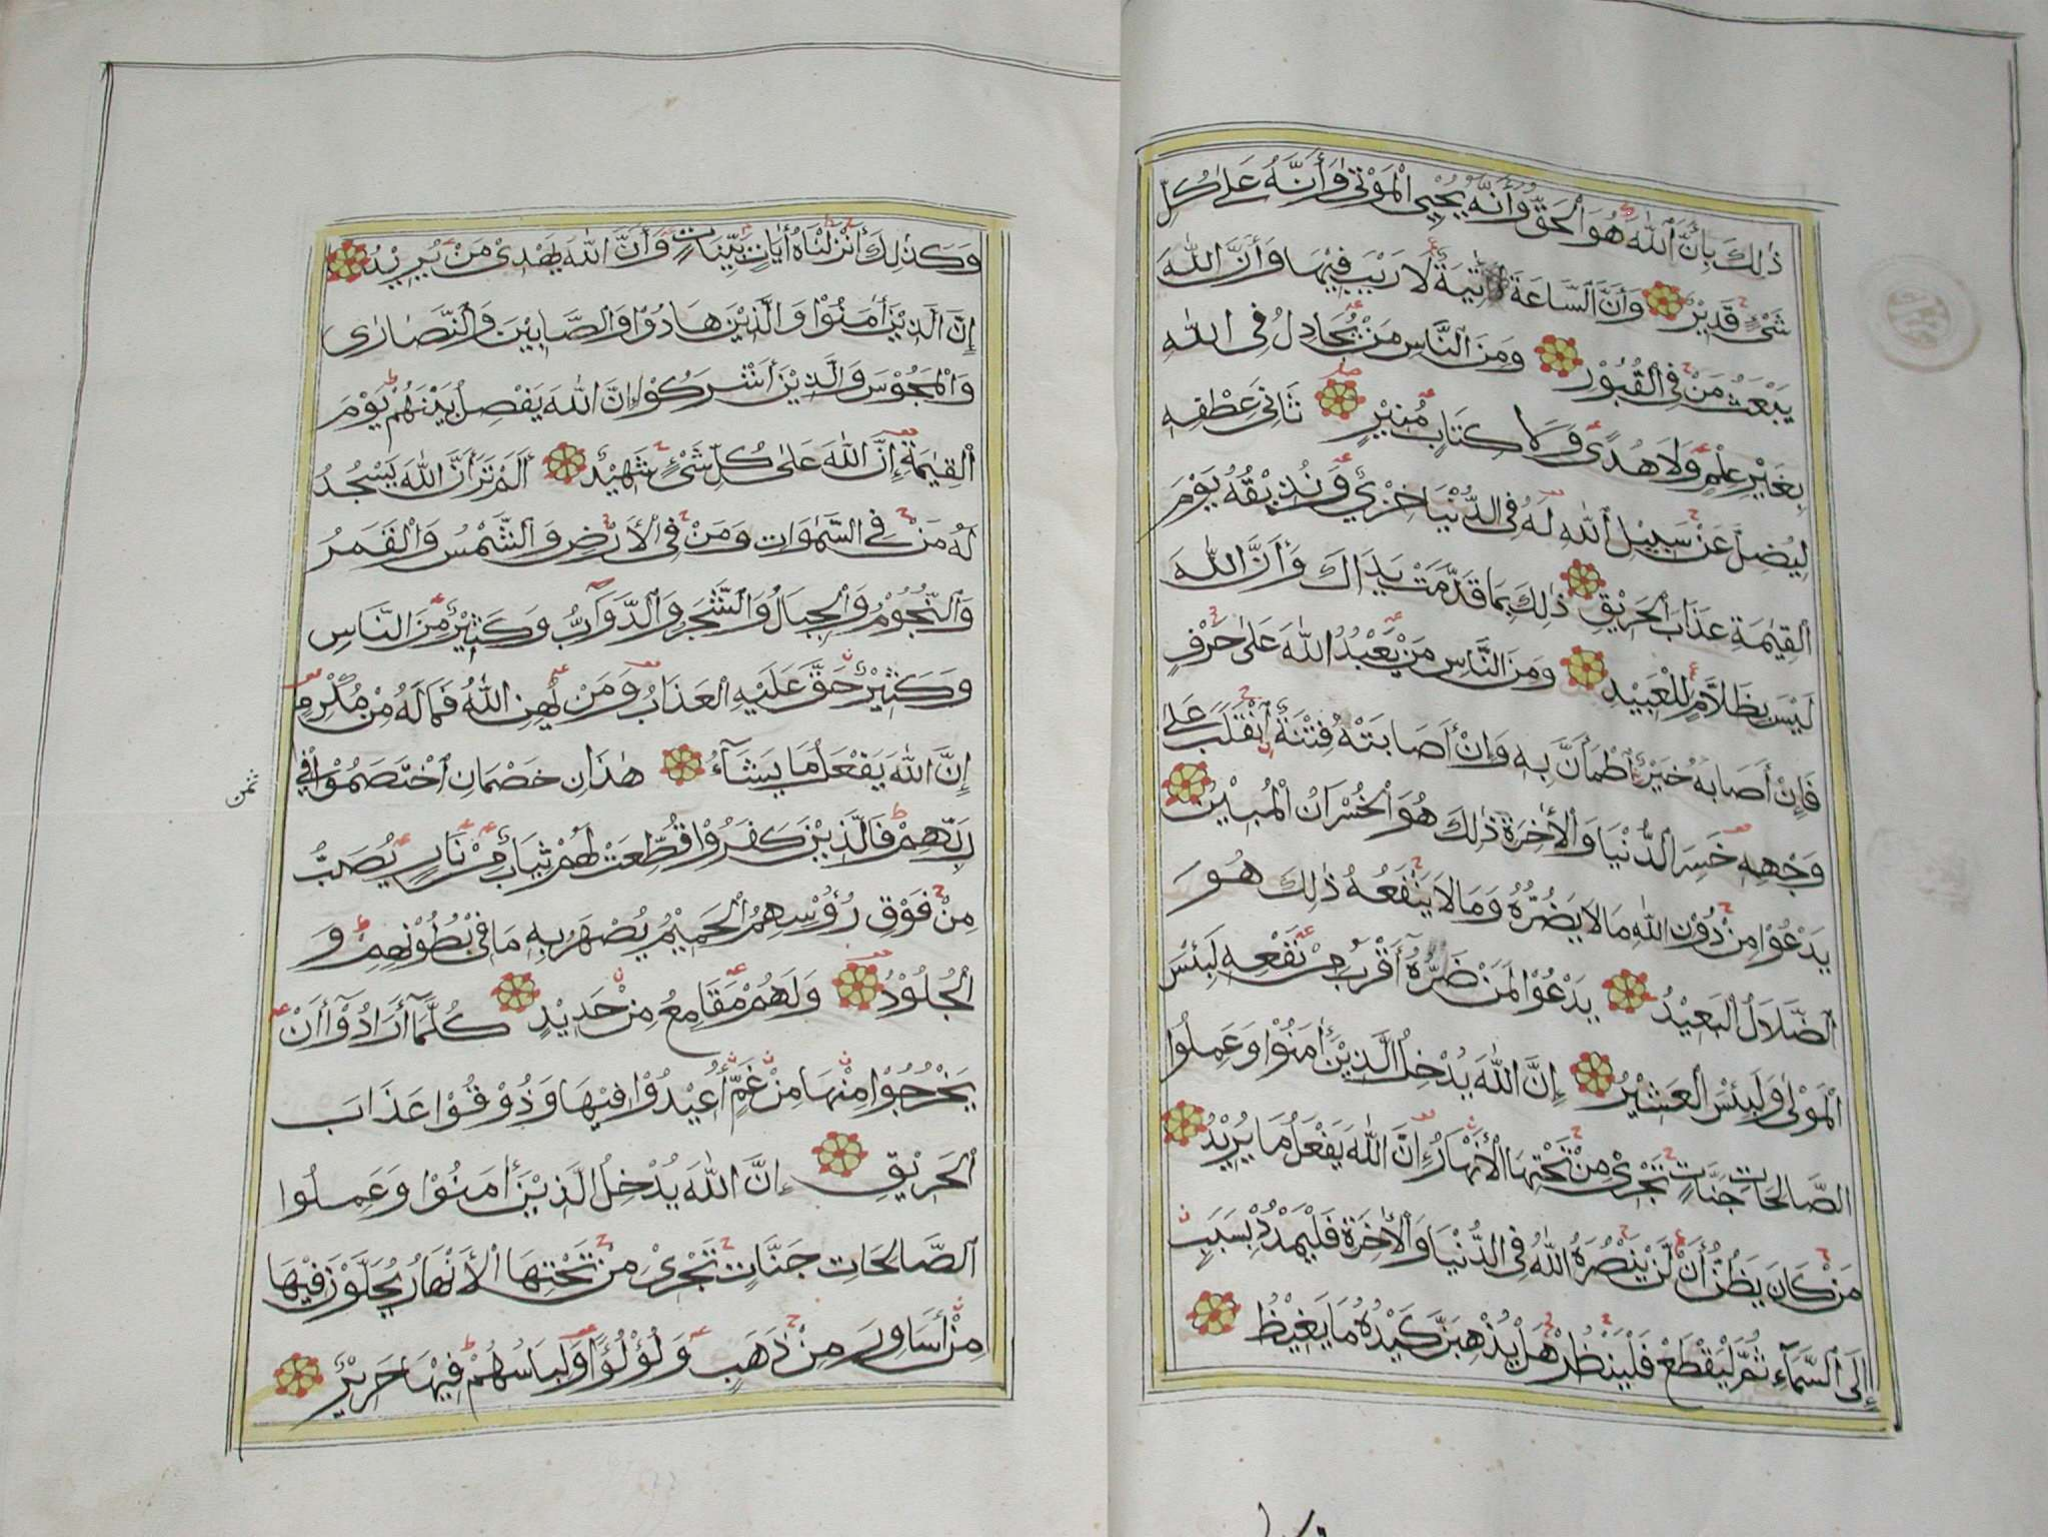 ذٰلِكَ بِاَنَّ ٱللّٰهَ هُوَ ٱلْحَقُّ وَأَنَّهُ يُحْيِى الْمَوْتٰى وَأَنَّهُ عَلٰى كُلِّ
شَىْءٍ قَدِيْرٌ وَأَنَّ ٱلسَّاعَةَ أٰتِيَةٌ لَا رَيْبَ فِيْهَا وَأَنَّ اللّٰهَ
يَبْعَثُ مَنْ فِى ٱلْقُبُوْرِ وَمِنَ ٱلنَّاسِ مَنْ يُّجَادِلُ فِى اللّٰهِ
بِغَيْرِ عِلْمٍ وَلَا هُدًى وَلَا كِتَابٍ مُّنِيْرٍ ثَانِىَ عِطْفِهِ
لِيُضِلَّ عَنْ سَبِيْلِ ٱللّٰهِ لَهُ فِى الدُّنْيَا خِزْىٌ وَنُذِيْقُهُ يَوْمَ
الْقِيٰمَةِ عَذَابَ الْحَرِيْقِ ذٰلِكَ بِمَا قَدَّمَتْ يَدَاكَ وَأَنَّ اللّٰهَ
لَيْسَ بِظَلَّامٍ لِّلْعَبِيْدِ وَمِنَ النَّاسِ مَنْ يَّعْبُدُ اللّٰهَ عَلٰى حَرْفٍ
فَاِنْ أَصَابَهُ خَيْرٌ ٱطْمَأَنَّ بِهِ وَاِنْ أَصَابَتْهُ فِتْنَةٌ ٱنْقَلَبَ عَلٰى
وَجْهِهِ خَسِرَ الدُّنْيَا وَالْأٰخِرَةَ ذٰلِكَ هُوَ الْخُسْرَانُ الْمُبِيْنُ
يَدْعُوْا مِنْ دُوْنِ اللّٰهِ مَا لَا يَضُرُّهُ وَمَا لَا يَنْفَعُهُ ذٰلِكَ هُوَ
ٱلضَّلَالُ الْبَعِيْدُ يَدْعُوْا لَمَنْ ضَرُّهُ أَقْرَبُ مِنْ نَّفْعِهِ لَبِئْسَ
الْمَوْلٰى وَلَبِئْسَ الْعَشِيْرُ إِنَّ اللّٰهَ يُدْخِلُ الَّذِيْنَ أٰمَنُوْا وَعَمِلُوا
الصَّالِحَاتِ جَنَّاتٍ تَجْرِىْ مِنْ تَحْتِهَا الْأَنْهَارُ إِنَّ اللّٰهَ يَفْعَلُ مَا يُرِيْدُ
مَنْ كَانَ يَظُنُّ أَنْ لَّنْ يَّنْصُرَهُ اللّٰهُ فِى الدُّنْيَا وَالْأٰخِرَةِ فَلْيَمْدُدْ بِسَبَبٍ
إِلَى ٱلسَّمَآءِ ثُمَّ لْيَقْطَعْ فَلْيَنْظُرْ هَلْ يُذْهِبَنَّ كَيْدُهُ مَا يَغِيْظُ
وَكَذٰلِكَ أَنْزَلْنَاهُ أٰيَاتٍ بَيِّنَاتٍ وَأَنَّ اللّٰهَ يَهْدِىْ مَنْ يُّرِيْدُ
إِنَّ الَّذِيْنَ أٰمَنُوْا وَالَّذِيْنَ هَادُوْا وَالصَّابِيْنَ وَالنَّصَارٰى
وَالْمَجُوْسَ وَالَّذِيْنَ أَشْرَكُوْا إِنَّ اللّٰهَ يَفْصِلُ بَيْنَهُمْ يَوْمَ
الْقِيٰمَةِ إِنَّ اللّٰهَ عَلٰى كُلِّ شَىْءٍ شَهِيْدٌ أَلَمْ تَرَ أَنَّ اللّٰهَ يَسْجُدُ
لَهُ مَنْ فِى السَّمٰوَاتِ وَمَنْ فِى الْأَرْضِ وَالشَّمْسُ وَالْقَمَرُ
وَالنُّجُوْمُ وَالْجِبَالُ وَالشَّجَرُ وَالدَّوَآبُّ وَكَثِيْرٌ مِّنَ النَّاسِ
وَكَثِيْرٌ حَقَّ عَلَيْهِ الْعَذَابُ وَمَنْ يُّهِنِ اللّٰهُ فَمَا لَهُ مِنْ مُّكْرِمٍ
إِنَّ اللّٰهَ يَفْعَلُ مَا يَشَآءُ هٰذَانِ خَصْمَانِ ٱخْتَصَمُوْا فِى
رَبِّهِمْ فَالَّذِيْنَ كَفَرُوْا قُطِّعَتْ لَهُمْ ثِيَابٌ مِّنْ نَّارٍ يُّصَبُّ
مِنْ فَوْقِ رُؤُسِهِمُ الْحَمِيْمُ يُصْهَرُ بِهِ مَا فِىْ بُطُوْنِهِمْ وَ
الْجُلُوْدُ وَلَهُمْ مَّقَامِعُ مِنْ حَدِيْدٍ كُلَّمَآ أَرَادُوْآ أَنْ
يَخْرُجُوْا مِنْهَا مِنْ غَمٍّ أُعِيْدُوْا فِيْهَا وَذُوْقُوْا عَذَابَ
الْحَرِيْقِ إِنَّ اللّٰهَ يُدْخِلُ الَّذِيْنَ أٰمَنُوْا وَعَمِلُوا
الصَّالِحَاتِ جَنَّاتٍ تَجْرِىْ مِنْ تَحْتِهَا الْأَنْهَارُ يُحَلَّوْنَ فِيْهَا
مِنْ أَسَاوِرَ مِنْ ذَهَبٍ وَلُؤْلُؤًا وَلِبَاسُهُمْ فِيْهَا حَرِيْرٌ
ثمن